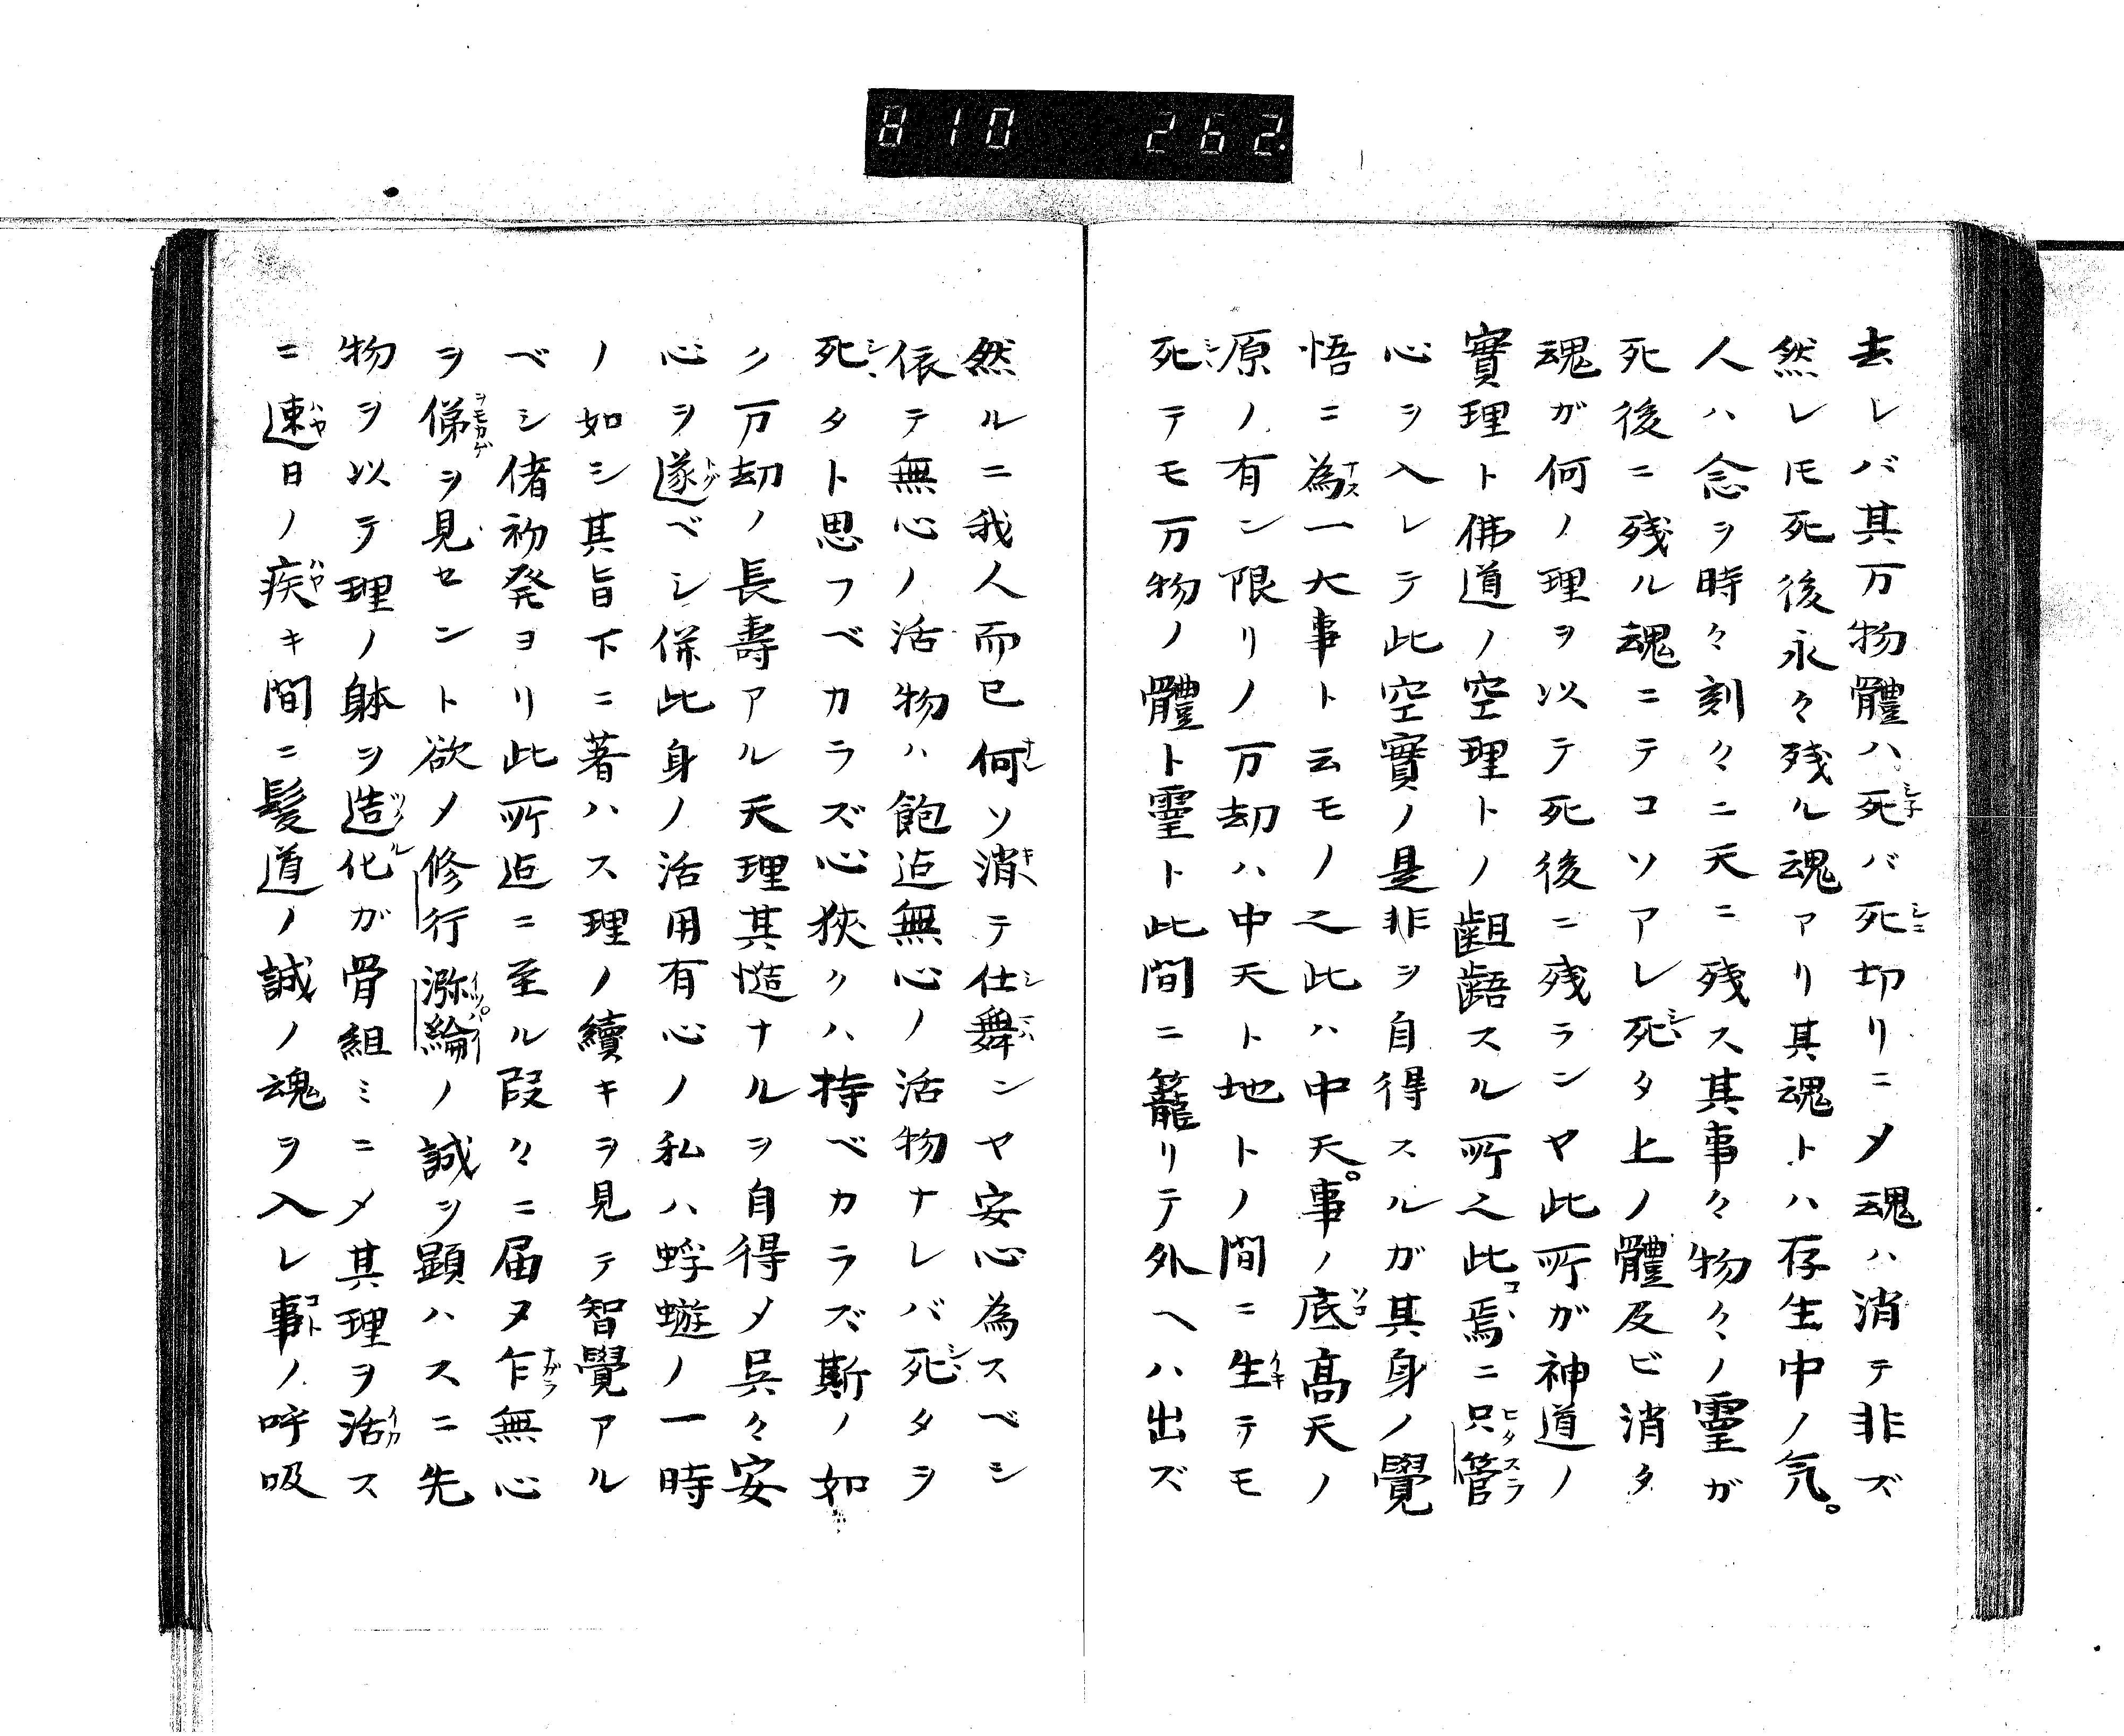 810 262.
去レバ其万物體ハ死バ死切リニメ魂ハ消テ非ズ
然レ𪜈死後永々残ル魂アリ其魂トハ存生中ノ気。
人ハ念ヲ時々刻々ニ天ニ残ス其事々物々ノ霊ガ
死後ニ残ル魂ニテコソアレ死タ上ノ體及ビ消タ
魂ガ何ノ理ヲ以テ死後ニ残ランヤ此所ガ神道ノ
實理ト佛道ノ空理トノ齟齬スル所之此焉ニ只管
心ヲ入レテ此空實ノ是非ヲ自得スルガ其身ノ覺
悟ニ為一大事ト云モノ之此ハ中天。事ノ底高天ノ
原ノ有ン限リノ万劫ハ中天ト地トノ間ニ生テモ
死テモ万物ノ體ト霊ト此間ニ籠リテ外ヘハ出ズ
然ルニ我人而已何ソ消テ仕舞ンヤ安心為スベシ
依テ無心ノ活物ハ飽迠無心ノ活物ナレバ死タヲ
死タト思フベカラズ心狹クハ持ベカラズ斯ノ如
ク万劫ノ長壽アル天理其慥ナルヲ自得メ呉々安
心ヲ遂ベシ併此身ノ活用有心ノ私ハ蜉蝣ノ一時
ノ如シ其旨下ニ著ハス理ノ續キヲ見テ智覺アル
ベシ偖初発ヨリ此所迠ニ至ル段々ニ届ヌ乍無心
ヲ俤ヲ見セント欲メ修行瀰綸ノ誠ヲ顕ハスニ先
物ヲ以テ理ノ躰ヲ造化ガ骨組ミニメ其理ヲ活ス
ニ速日ノ疾キ間ニ髪道ノ誠ノ魂ヲ入レ事ノ呼吸